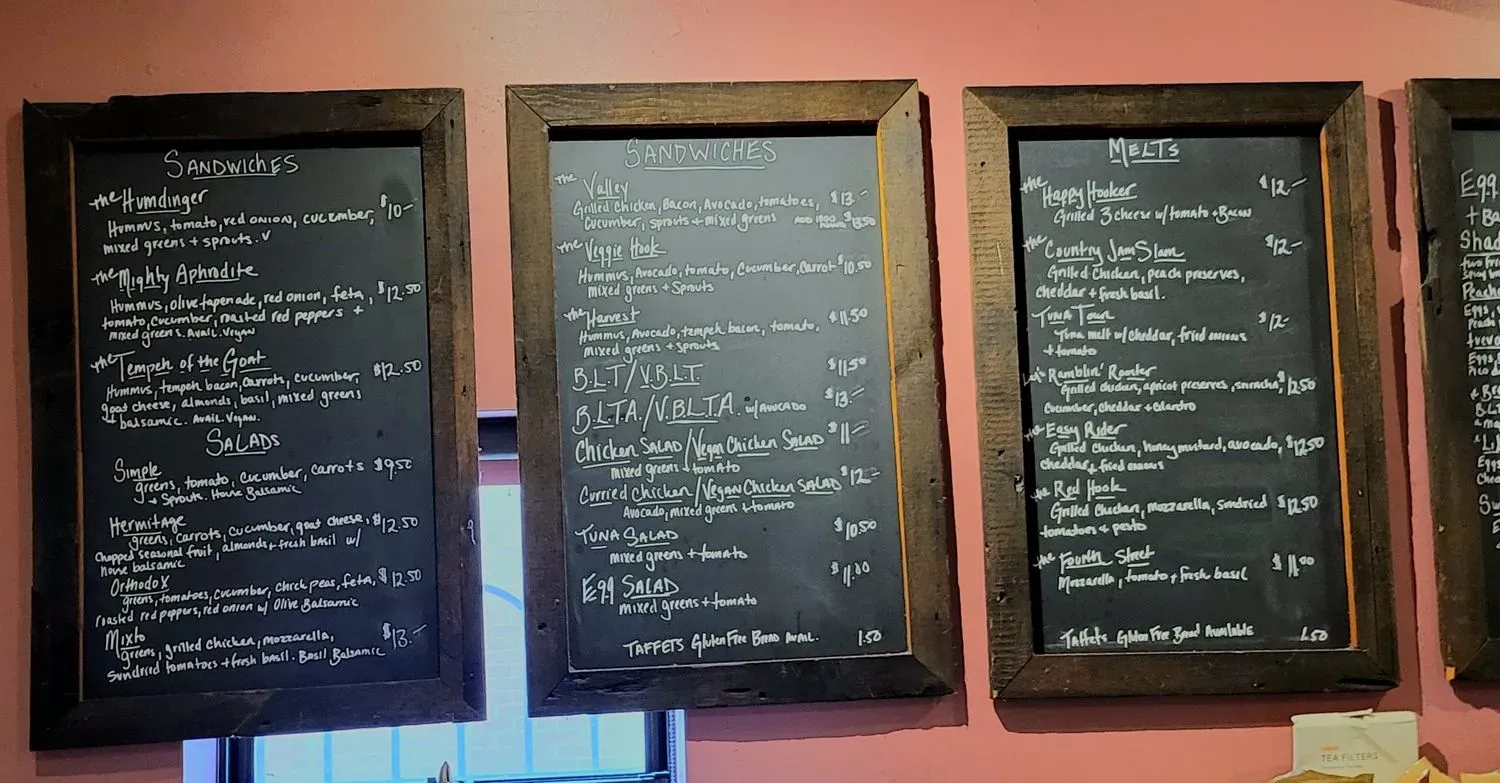 SANDWICHES
the Humdinger $10-
Hummus, tomato, red onion, cucumber,
mixed greens + sprouts. V
the Mighty Aphrodite
Hummus, olive tapenade, red onion, feta, $12.50
tomato, cucumber, roasted red peppers +
mixed greens. Avail. Vegan
the Tempeh of the Goat $12.50
Hummus, tempeh bacon, carrots, cucumber,
goat cheese, almonds, basil, mixed greens
+ balsamic. Avail. Vegan.
SALADS
Simple
greens, tomato, cucumber, carrots $9.50
+ Sprouts. House Balsamic
Hermitage
greens, carrots, cucumber, goat cheese, $12.50
chopped seasonal fruit, almonds + fresh basil w/
house balsamic
Orthodox
greens, tomatoes, cucumber, chick peas, feta, $12.50
roasted red peppers, red onion w/ Olive Balsamic
Mixto
greens, grilled chicken, mozzarella, $13.-
Sundried tomatoes + fresh basil. Basil Balsamic
SANDWICHES
the Valley
Grilled Chicken, Bacon, Avocado, tomatoes, $13-
Cucumber, sprouts + mixed greens
the Veggie Hook
Hummus, Avocado, tomato, Cucumber, Carrot $10.50
mixed greens + Sprouts
the Harvest
Hummus, Avocado, tempeh bacon, tomato, $11.50
mixed greens + sprouts
B.L.T/V.B.L.T $11.50
B.L.T.A./V.B.L.T.A. w/ AVOCADO $13.-
Chicken SALAD/Vegan Chicken SALAD $11-
mixed greens + tomato
Curried Chicken/VEGAN Chicken SALAD $12-
Avocado, mixed greens + tomato
TUNA SALAD $10.50
mixed greens + tomato
Egg SALAD $11.00
mixed greens + tomato
TAFFETS Gluten Free Bread AVAIL. 1.50
MELTS
the Happy Hooker $12-
Grilled 3 cheese w/ tomato + Bacon
the Country Jam Slam $12-
Grilled Chicken, peach preserves,
cheddar + fresh basil.
Tuna Town
Tuna melt w/ cheddar, fried onions $12-
+ tomato
Ramblin' Romter
Grilled chicken, apricot preserves, sriracha, $12.50
cucumber, cheddar + cilantro
the Easy Rider
Grilled Chicken, honey mustard, avocado, $12.50
cheddar + fried onions
the Red Hook
Grilled Chicken, mozzarella, Sundried $12.50
tomatoes + pesto
the Fourth Street $11.00
Mozzarella, tomato + fresh basil
Taffets Gluten Free Bread Available 1.50
TEA FILTERS